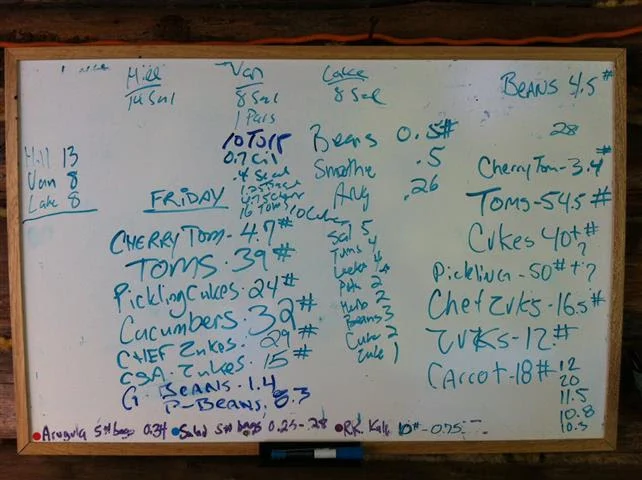 Hill
14 Sal
Van
8 Sal
1 Pars
10 Torp
0.7 Cil
Lake
8 Sal
Hill 13
Van 8
Lake 8
FRIDAY
CHERRY TOM - 4.7#
TOMS - 39#
Pickling Cukes - 24#
Cucumbers 32#
CHEF Zukes - 29#
CSA - Zukes - 15#
G. BEANS - 1.4
P-BEANS, 0.3
Beans 0.5#
Smoothie .5
Arug .26
Sal 5
Turns 4
Leeks 4
Pot 2
Beans 3
Cuke 2
Zuke 1
BEANS 4.5#
28
Cherry Tom - 3.4#
Toms - 54.5#
Cukes 40+#?
Pickling - 50#+?
Chef Zuks - 16.5#
Zuks - 12#
Carrot - 18#
12
20
11.5
10.8
10.5
Arugula 5# bags 0.34 Salad 5# bags 0.25-.28 R.R. Kale 10# - 0.75